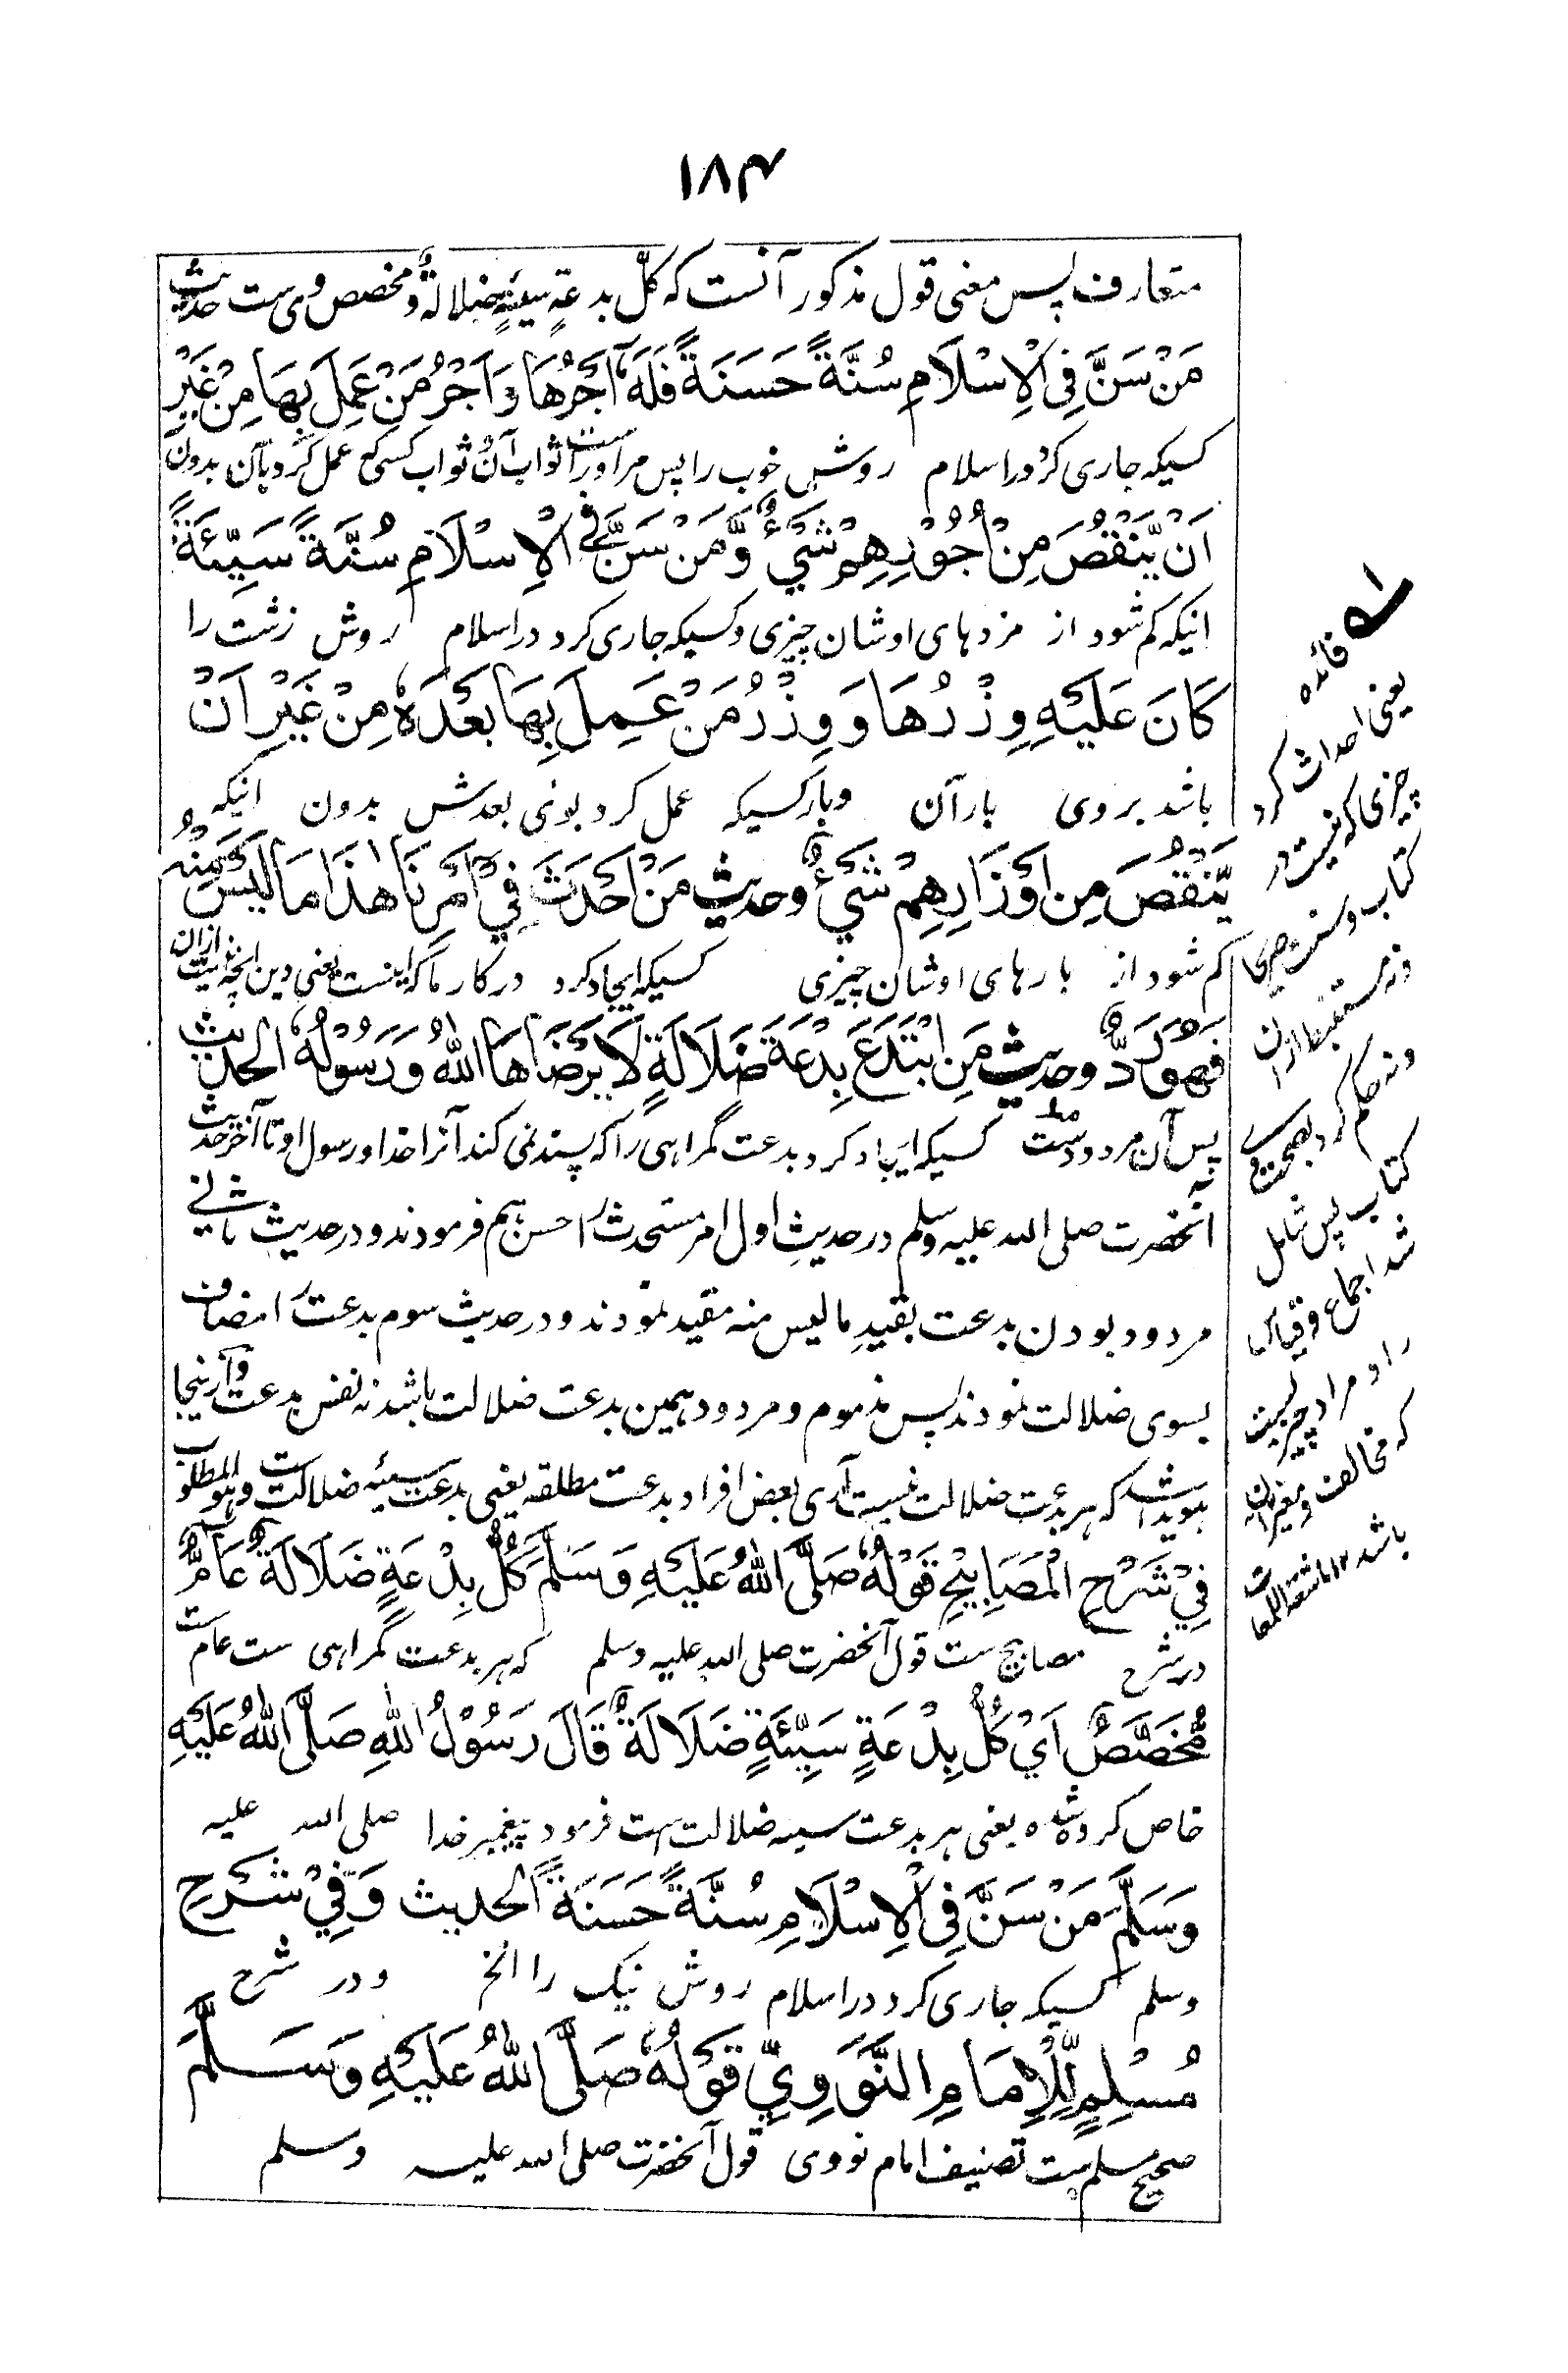 ۱۸۴
متعارف پس معنی قول مذکور آنست که کلّ بدعةٍ سیّئةٍ ضلالةٌ و مخصص وی ست حدیث
مَنْ سَنَّ فِی الْاِسْلَامِ سُنَّةً حَسَنَةً فَلَهٗ اَجْرُهَا وَاَجْرُ مَنْ عَمِلَ بِهَا مِنْ غَيْرِ
کسیکه جاری کرد در اسلام روش خوب را پس مر او راست ثواب آن و ثواب کسی که عمل کرد بآن بدون
اَنْ يَّنْقُصَ مِنْ اُجُوْرِهِمْ شَيْءٌ وَّمَنْ سَنَّ فِی الْاِسْلَامِ سُنَّةً سَيِّئَةً
اینکه کم شود از مزدهای اوشان چیزی و کسیکه جاری کرد در اسلام روش زشت را
كَانَ عَلَيْهِ وِزْرُهَا وَوِزْرُ مَنْ عَمِلَ بِهَا بَعْدَهٗ مِنْ غَيْرِ اَنْ
باشد بروی بار آن و بار کسیکه عمل کرد بوی بعدش بدون اینکه
يَّنْقُصَ مِنْ اَوْزَارِهِمْ شَيْءٌ وحدیث مَنْ اَحْدَثَ فِيْ اَمْرِنَا هٰذَا مَا لَيْسَ مِنْهُ
کم شود از بارهای اوشان چیزی کسیکه ایجاد کرد در کار ما که اینست یعنی دین آنچه نیست ازان
فَهُوَ رَدٌّ وحدیث مَنِ ابْتَدَعَ بِدْعَةَ ضَلَالَةٍ لَا يَرْضَاهَا اللهُ وَرَسُوْلُهٗ الحدیث
پس آن مردود ست کسیکه ایجاد کرد بدعت گمراهی را که پسند نمی کند آنرا خدا و رسول او تا آخر حدیث
آنحضرت صلی الله علیه وسلم در حدیثِ اول امر مستحدث را حسن هم فرمودند و در حدیث ثانی
مردود بودن بدعت بقیدِ ما لیس منه مقید نمودند و در حدیث سوم بدعت را مضاف
بسوی ضلالت نمودند پس مذموم و مردود همین بدعت ضلالت باشد نه نفس بدعت و از ینجا
هویدا شد که هر بدعت ضلالت نیست آری بعض افراد بدعت مطلقه یعنی بدعت سیئه ضلالت ست و هو المطلوب
فِيْ شَرْحِ الْمَصَابِيْحِ قَوْلُهٗ صَلَّى اللهُ عَلَيْهِ وَسَلَّمَ كُلُّ بِدْعَةٍ ضَلَالَةٌ عَامٌّ
در شرح مصابیح ست قول آنحضرت صلی الله علیه وسلم که هر بدعت گمراهی ست عام ست
مُخَصَّصٌ اَيْ كُلُّ بِدْعَةٍ سَيِّئَةٍ ضَلَالَةٌ قَالَ رَسُوْلُ اللهِ صَلَّى اللهُ عَلَيْهِ
خاص کرده شده یعنی هر بدعت سیئه ضلالت ست فرمود پیغمبر خدا صلی الله علیه
وَسَلَّمَ مَنْ سَنَّ فِی الْاِسْلَامِ سُنَّةً حَسَنَةً الحدیث وَفِيْ شَرْحِ
وسلم کسیکه جاری کرد در اسلام روش نیک را الخ و در شرح
مُسْلِمٍ لِّلْاِمَامِ النَّوَوِيِّ قَوْلُهٗ صَلَّى اللهُ عَلَيْهِ وَسَلَّمَ
صحیح مسلم ست تصنیف امام نووی قول آنحضرت صلی الله علیه وسلم
فائده
یعنی احداث کرد
چیزی که نیست در
کتاب و سنت صریحا
و نه مستنبط ازان
و نه حکم کرد بصحت وی
کتاب پس شامل
شد اجماع و قیاس
را و مراد چیزیست
که مخالف و مغیر آن
باشد ۱۲ اشعة اللمعات